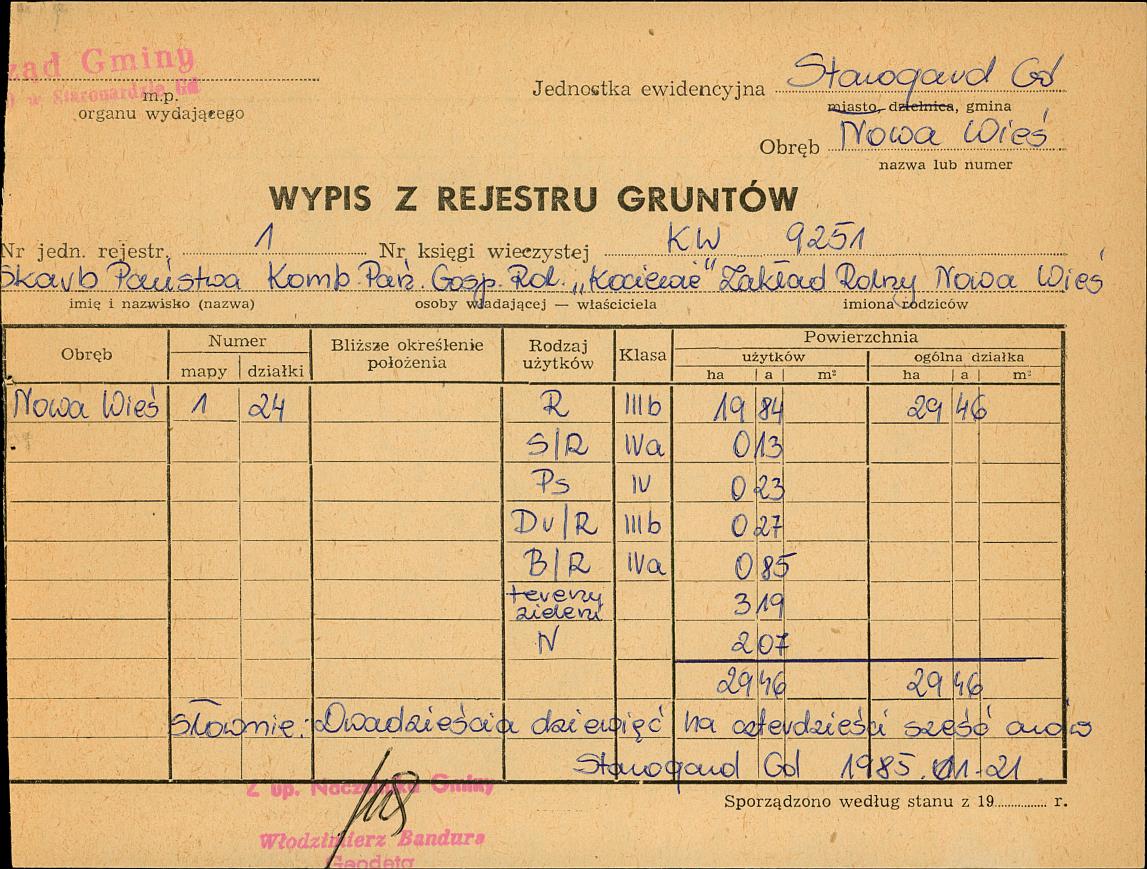 ząd Gminy
w Starogardzie Gd
m.p.
organu wydającego
Jednostka ewidencyjna Starogard Gd
miasto, dzielnica, gmina
Obręb Nowa Wieś
nazwa lub numer
WYPIS Z REJESTRU GRUNTÓW
Nr jedn. rejestr. 1 Nr księgi wieczystej KW 9251
Skarb Państwa Komb. Pań. Gosp. Rol. „Kociewie" Zakład Rolny Nowa Wieś
imię i nazwisko (nazwa) osoby władającej — właściciela imiona rodziców
Obręb Numer Bliższe określenie położenia Rodzaj użytków Klasa Powierzchnia
mapy działki użytków ogólna działka
ha a m² ha a m²
Nowa Wieś 1 24 R IIIb 19 84 29 46
S/R IVa 0 13
Ps IV 0 23
Dv/R IIIb 0 27
B/R IVa 0 85
tereny zieleni 3 19
N 2 07
29 46 29 46
Słownie: Dwadzieścia dziewięć ha czterdzieści sześć arów
Starogard Gd 1985.01-21
Z up. Naczelnika Gminy
Sporządzono według stanu z 19........... r.
Włodzimierz Bandura
Geodeta